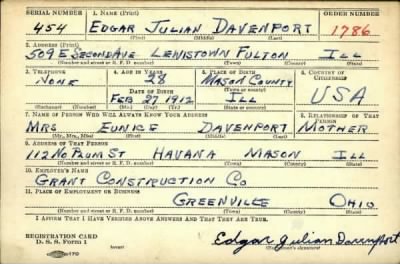 SERIAL NUMBER 1. NAME (Print) ORDER NUMBER
454 EDGAR JULIAN DAVENPORT 1786
(First) (Middle) (Last)
2. ADDRESS (Print)
509 E SECOND AVE LEWISTOWN FULTON ILL
(Number and street or R. F. D. number) (Town) (County) (State)
3. TELEPHONE 4. AGE IN YEARS 5. PLACE OF BIRTH 6. COUNTRY OF CITIZENSHIP
NONE 28 MASON COUNTY
DATE OF BIRTH (Town or county) USA
FEB 27 1912 ILL
(Exchange) (Number) (Mo.) (Day) (Yr.) (State or country)
7. NAME OF PERSON WHO WILL ALWAYS KNOW YOUR ADDRESS 8. RELATIONSHIP OF THAT PERSON
MRS EUNICE DAVENPORT MOTHER
(Mr., Mrs., Miss) (First) (Middle) (Last)
9. ADDRESS OF THAT PERSON
112 NO PLUM ST HAVANA MASON ILL
(Number and street or R. F. D. number) (Town) (County) (State)
10. EMPLOYER'S NAME
GRANT CONSTRUCTION CO
11. PLACE OF EMPLOYMENT OR BUSINESS
GREENVILLE OHIO
(Number and street or R. F. D. number) (Town) (County) (State)
I AFFIRM THAT I HAVE VERIFIED ABOVE ANSWERS AND THAT THEY ARE TRUE.
REGISTRATION CARD
D. S. S. Form 1 Edgar Julian Davenport